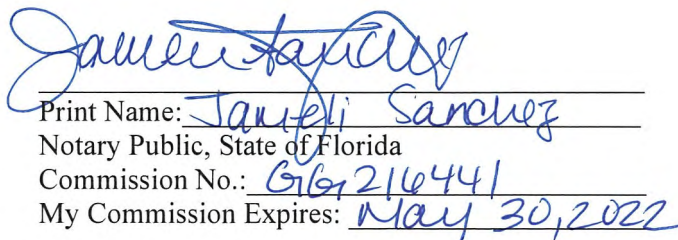 Print Name: Jameli Sanchez
Notary Public, State of Florida
Commission No.: GG216441
My Commission Expires: May 30, 2022